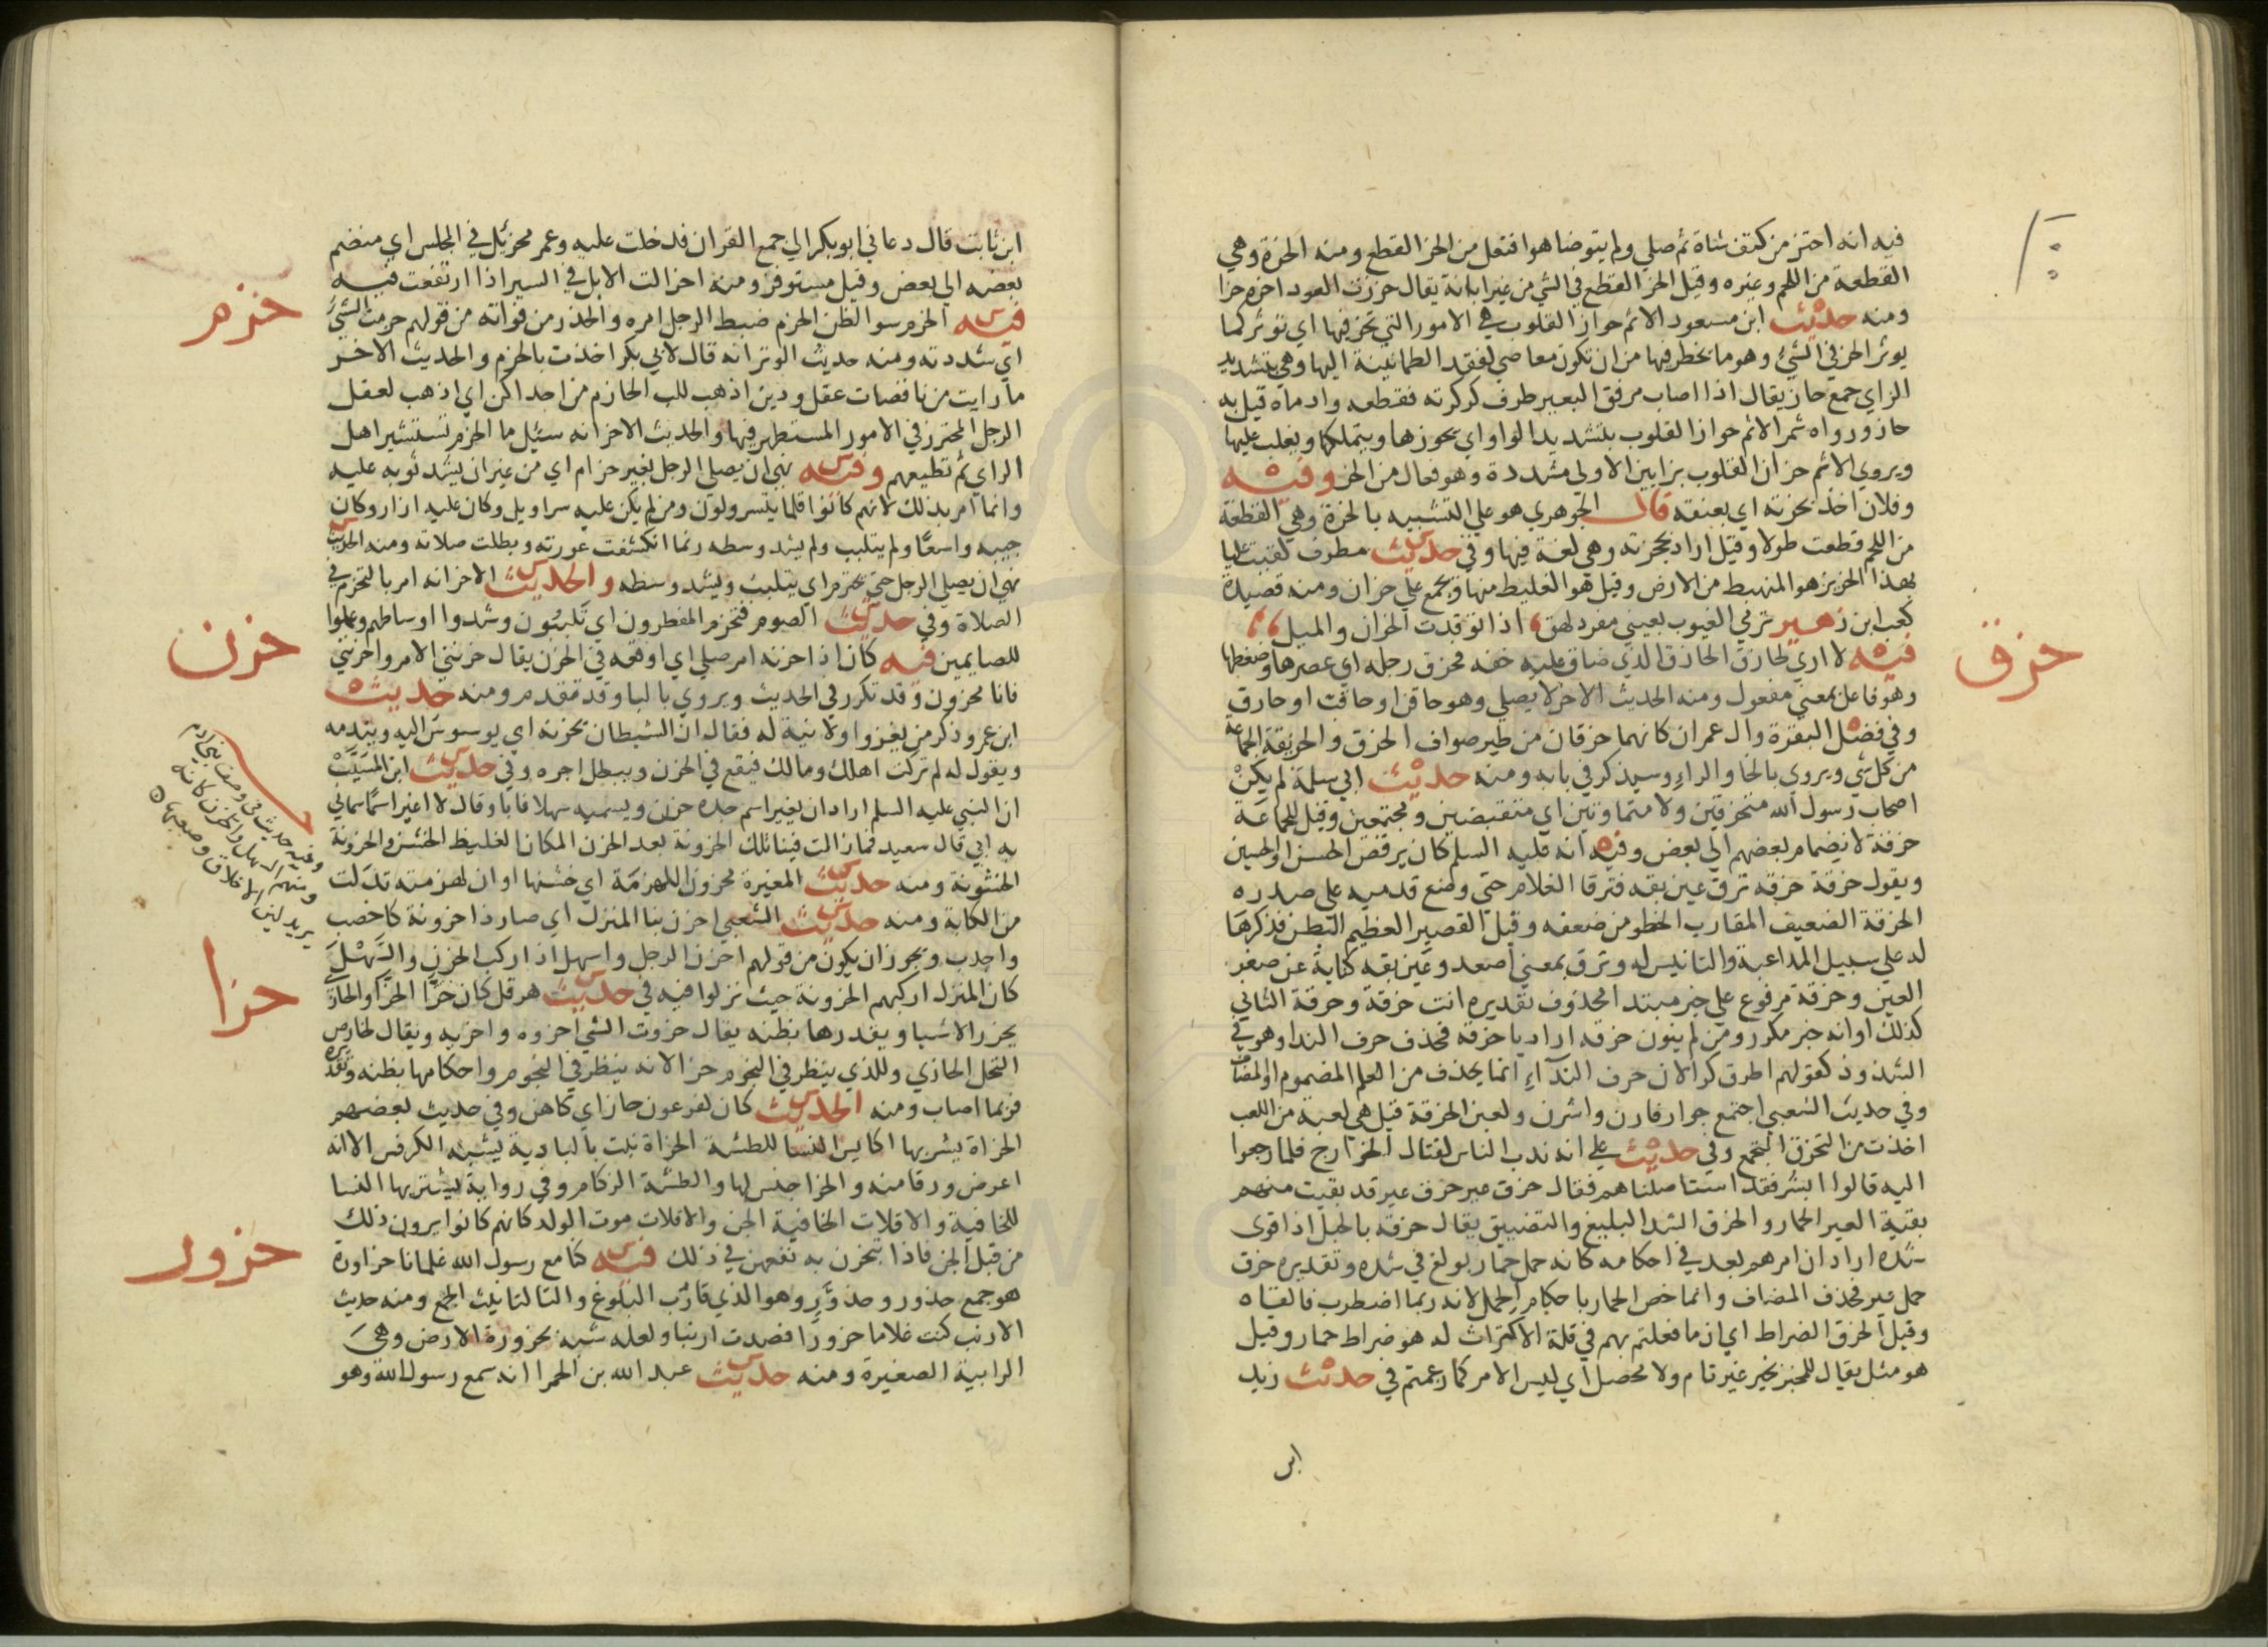 فيه انه احتز من كتف شاة ثم صلي ولم يتوضا هو افتعل من الحز القطع ومنه الحزة وهي
القطعة من اللحم وغيره وقيل الحز القطع في الشي من غير ابانة يقال حززت العود احزه حزا
ومنه حديث ابن مسعود الاثم حواز القلوب هي الامور التي تحز فيها اي توثر كما
يوثر الحز في الشيء وهو ما يخطر فيها من ان تكون معاصي لفقد الطمانينة اليها وهي بتشديد
الزاي جمع حاز يقال اذا اصاب مرفق البعير طرف كركرته فقطعه وادماه قيل به
حاز ورواه شمر الاثم حواز القلوب بتشديد الواو اي يحوزها ويتملكها ويغلب عليها
ويروي الاثم حزاز القلوب بزايين الاولي مشددة وهو فعال من الحز وفيه
وفلان اخذ بحزته اي بعنقه قال الجوهري هو علي التشبيه بالحزة وهي القطعة
من اللحم قطعت طولا وقيل اراد بحجزته وهي لغة فيها وفي حديث مطرف لقيت عليا
بهذا الحزيز هو المنهبط من الارض وقيل هو الغليظ منها ويجمع علي حزان ومنه قصيدة
كعب ابن زهير ترمي الغيوب بعيني مفرد لهق اذا توقدت الحزان والميل
حزق
فيه لا اري لحازق الحازق الذي ضاق عليه خفه فحزق رجله اي عصرها وضغطها
وهو فاعل بمعني مفعول ومنه الحديث الاخر لا يصلي وهو حاقن او حاقب او حازق
وفي فضل البقرة وال عمران كانهما حزقان من طير صواف الحزق والحزيقة الجماعة
من كل شي ويروي بالخا والراء وسيذكر في بابه ومنه حديث ابي سلمة لم يكن
اصحاب رسول الله متحزقين ولا متماوتين اي متقبضين ومجتمعين وقيل للجماعة
حزقة لانضمام بعضهم الي بعض وفيه انه عليه السلم كان يرقص الحسن او الحسين
ويقول حزقة حزقه ترق عين بقه فترقا الغلام حتي وضع قدميه علي صدره
الحزقة الضعيف المقارب الخطو من ضعفه وقيل القصير العظيم البطن فذكرها
له علي سبيل المداعبة والتانيس له وترق بمعني اصعد وعين بقه كناية عن صغر
العين وحزقة مرفوع علي خبر مبتدا محذوف تقديره انت حزقة وحزقة الثاني
كذلك او انه خبر مكرر ومن لم ينون حزقه اراد يا حزقه فحذف حرف الندا وهو في
الشذوذ كقولهم اطرق كرا لان حرف الندآء انما يحذف من العلم المضموم او المضاف
وفي حديث الشعبي اجتمع جوار فارن واشرن ولعبن الحزقة قيل هي لعبة من اللعب
اخذت من التحزق التجمع وفي حديث علي انه ندب الناس لقتال الخوارج فلما رجعوا
اليه قالوا ابشر فقد استاصلناهم فقال حزق عير حزق عير قد بقيت منهم
بقية العير الحمار والحزق الشد البليغ والتضييق يقال حزقه بالحبل اذا قوي
شده اراد ان امرهم بعد في احكامه كانه حمل حمار بولغ في شده وتقديره حزق
حمل عير فحذف المضاف وانما خص الحمار باحكام الحمل لانه ربما اضطرب فالقاه
وقيل الحزق الضراط اي ان ما فعلتم بهم في قلة الاكتراث له هو ضراط حمار وقيل
هو مثل يقال للمخبر بخبر غير تام ولا محصل اي ليس الامر كما زعمتم في حديث زيد
ابن
ابن ثابت قال دعاني ابو بكر الي جمع القران فدخلت عليه وعمر محزئل في المجلس اي منضم
بعضه الي بعض وقيل مستوفز ومنه احزالت الابل في السير اذا ارتفعت فيه
حزم
فيه الحزم سو الظن الحزم ضبط الرجل امره والحذر من فواته من قولهم حزمت الشيء
اي شددته ومنه حديث الوتر انه قال لابي بكر اخذت بالحزم والحديث الاخر
ما رايت من ناقصات عقل ودين اذهب للب الحازم من احداكن اي اذهب لعقل
الرجل المحترز في الامور المستظهر فيها والحديث الاخر انه سئيل ما الحزم تستشير اهل
الراي ثم تطيعهم وفيه نهي ان يصلي الرجل بغير حزام اي من غير ان يشد ثوبه عليه
وانما امر بذلك لانهم كانوا قلما يتسرولون ومن لم يكن عليه سراويل وكان عليه ازار وكان
جيبه واسعا ولم يتلبب ولم يشد وسطه ربما انكشفت عورته وبطلت صلاته ومنه الحديث
نهي ان يصلي الرجل حتي يحتزم اي يتلبب ويشد وسطه والحديث الاخر انه امر بالتحزم في
الصلاة وفي حديث الصوم فتحزم المفطرون اي تلببون وشدوا اوساطهم وعملوا
حزن
للصايمين فيه كان اذا حزنه امر صلي اي اوقعه في الحزن يقال حزنني الامر واحزنني
فانا محزون وقد تكرر في الحديث ويروي بالبا وقد تقدم ومنه حديث
ابن عمر وذكر من يغزوا ولا نية له فقال ان الشيطان يحزنه اي يوسوس اليه ويندمه
ويقول له لم تركت اهلك ومالك فيقع في الحزن ويبطل اجره وفي حديث ابن المسيب
ان النبي عليه السلم اراد ان يغير اسم جده حزن ويسميه سهلا فابا وقال لا اغير اسما سماني
به ابي قال سعيد فما زالت فينا تلك الحزونة بعد الحزن المكان الغليظ الخشن والحزونة
الخشونة ومنه حديث المغيرة محزون اللهزمة اي خشنها او ان لهزمته تدلت
من الكابة ومنه حديث الشعبي احزن بنا المنزل اي صار ذا حزونة كاخصب
واجدب ويجوز ان يكون من قولهم احزن الرجل واسهل اذا ركب الحزن والسهل
وفيه حديث
ومنهم السهل والحزن
يريد لين الاخلاق وصعبها
حزا
كان المنزل اركبهم الحزونة حيث نزلوا فيه في حديث هرقل كان حزا الحزا والحازي
يحزر الاشيا ويقدرها بظنه يقال حزوت الشي احزوه واحزيه ويقال لخارص
النخل الحازي وللذي ينظر في النجوم حزا لانه ينظر في النجوم واحكامها بظنه وتقديره
فربما اصاب ومنه الحديث كان لفرعون حاز اي كاهن وفي حديث بعضهم
الحزاة يشربها اكايس النسا للطشة الحزاة نبت بالبادية يشبه الكرفس الا انه
اعرض ورقا منه والحزا جنس لها والطشة الزكام وفي رواية يشتريها النسا
للخافية والاقلات الخافية الجن والاقلات موت الولد كانهم كانوا يرون ذلك
من قبل الجن فاذا تبخرن به نفعهن في ذلك فيه كنا مع رسول الله غلمانا حزاورة
حزور
هو جمع حزور وحزور وهو الذي قارب البلوغ والتا لتانيث الجمع ومنه حديث
الارنب كنت غلاما حزورا فصدت ارنبا ولعله شبه بحزورة الارض وهي
الرابية الصغيرة ومنه حديث عبد الله بن الحمرا انه سمع رسول الله وهو